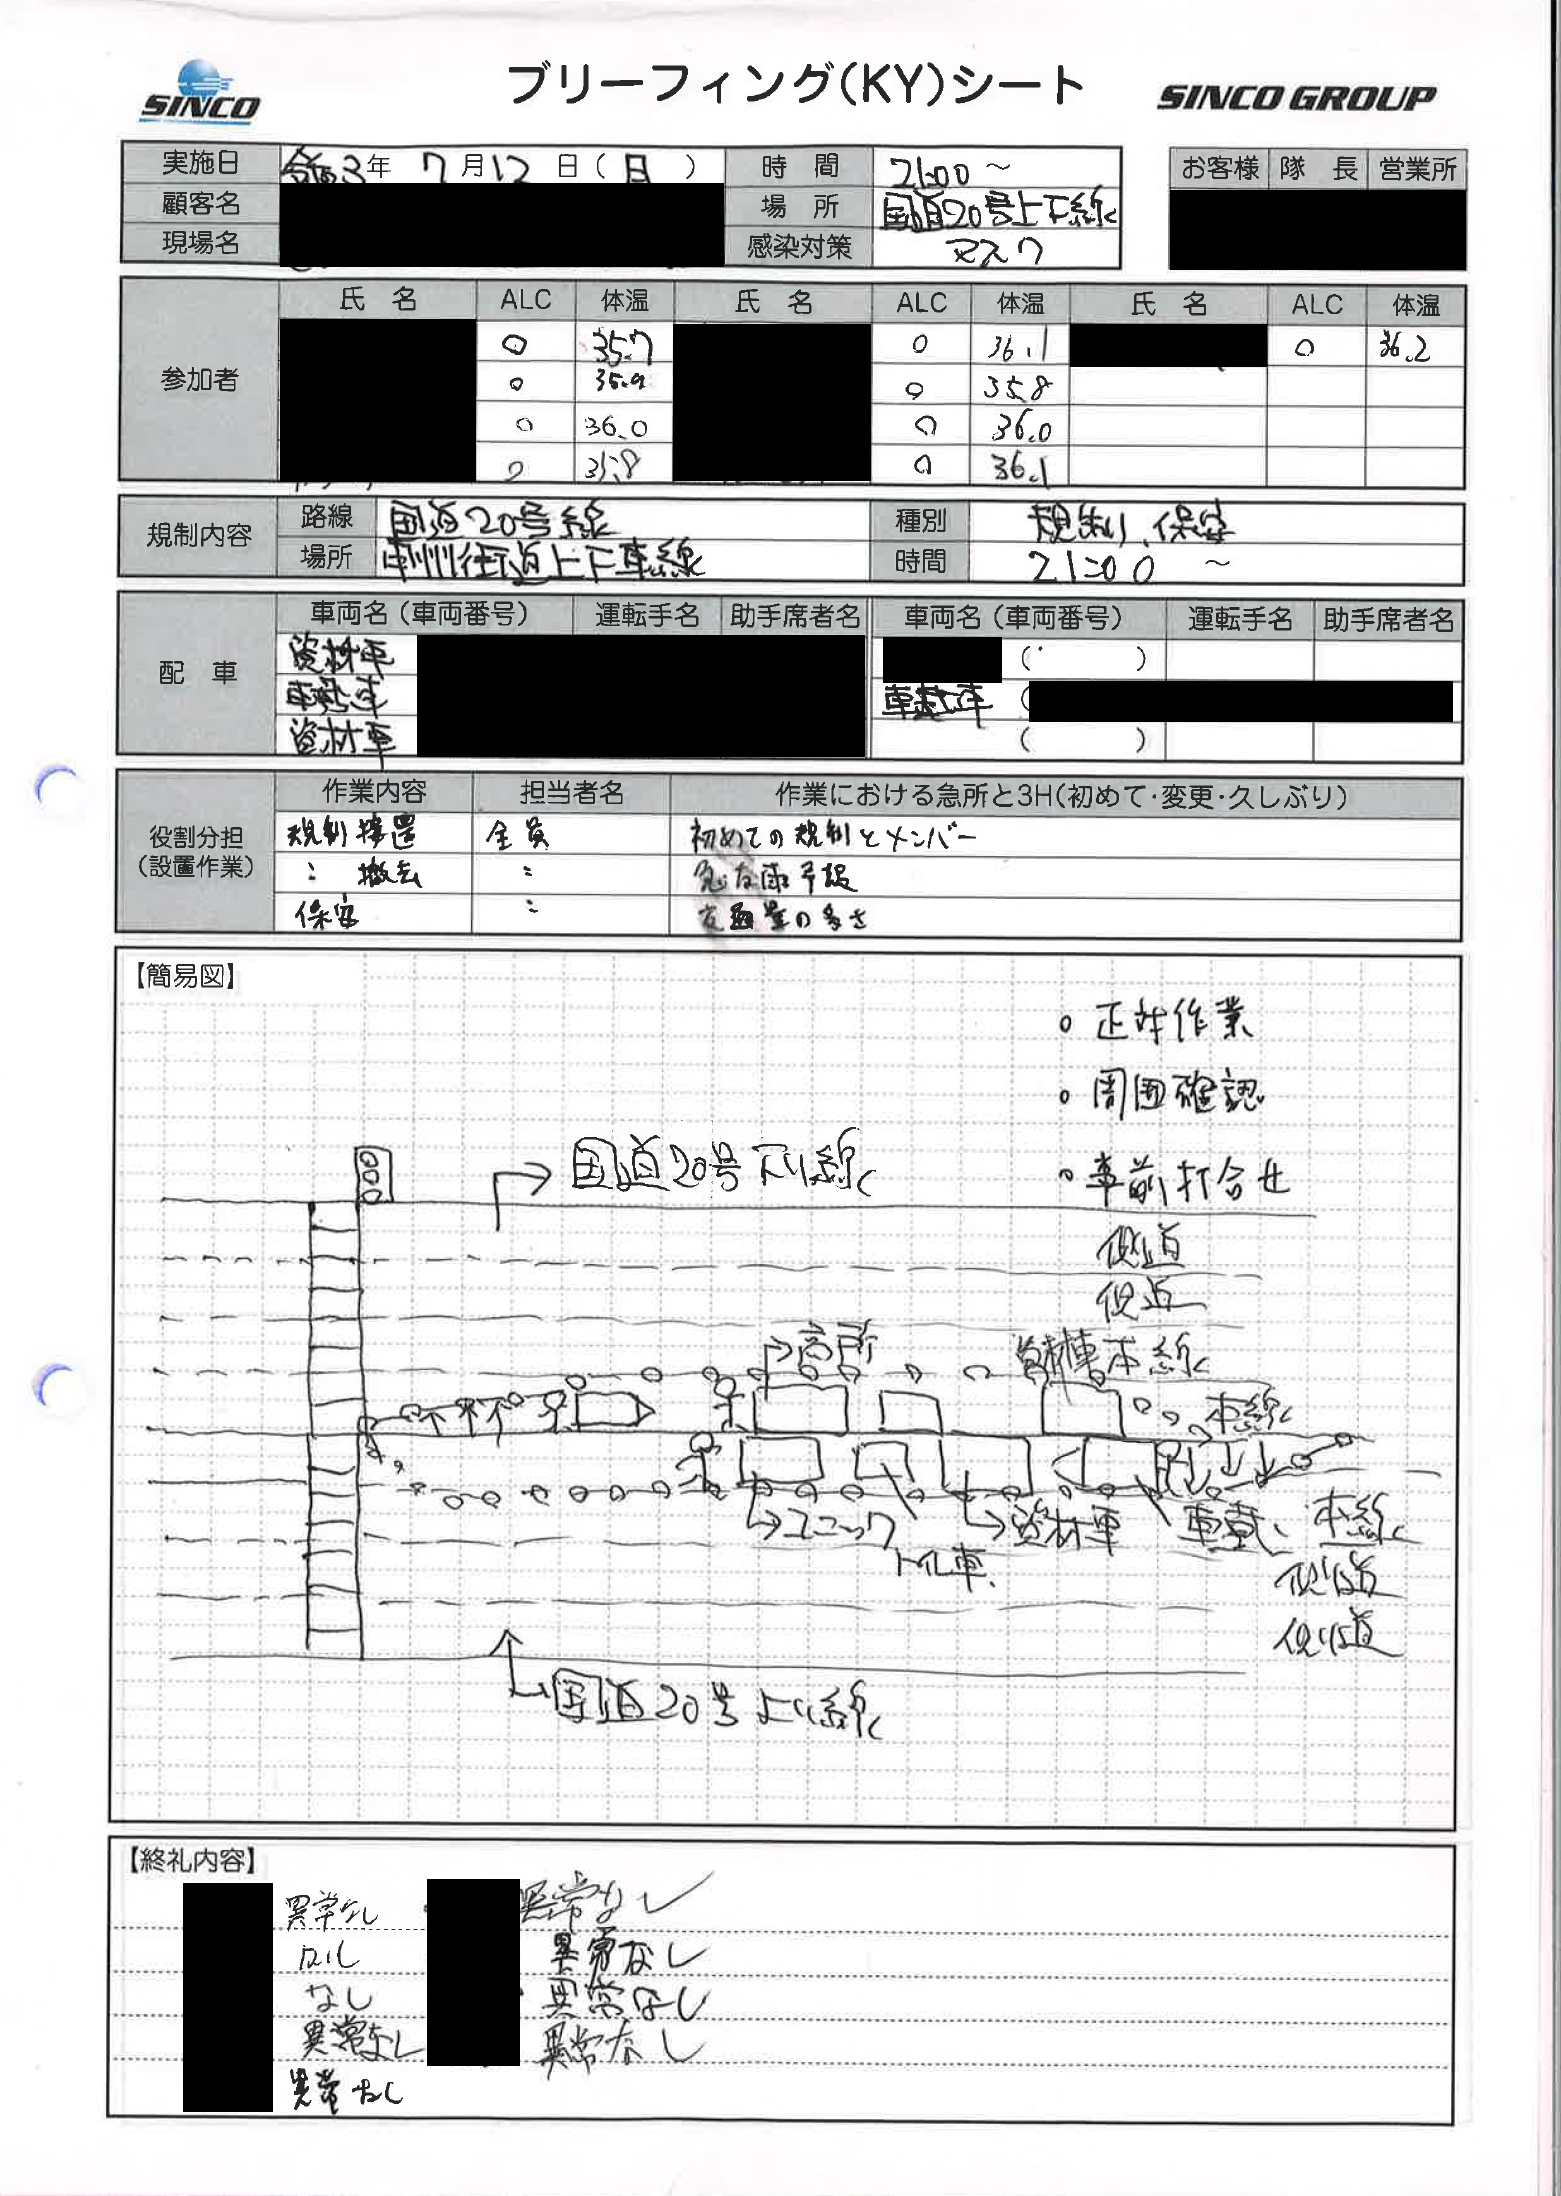 SINCO
ブリーフィング(KY)シート
SINCO GROUP
実施日 令和3年 7月12日(月) 時間 21:00 ~
お客様 隊長 営業所
顧客名 場所 国道20号上下線
現場名 感染対策 マスク
参加者 氏名 ALC 体温 氏名 ALC 体温 氏名 ALC 体温
○ 35.7 ○ 36.1 ○ 36.2
○ 35.9 ○ 35.8
○ 36.0 ○ 36.0
○ 35.8 ○ 36.1
規制内容 路線 国道20号線 種別 規制、保安
場所 甲州街道上下車線 時間 21:00 ~
配車 車両名(車両番号) 運転手名 助手席者名 車両名(車両番号) 運転手名 助手席者名
資材車 ( )
車載車 車載車 (
資材車 ( )
役割分担(設置作業) 作業内容 担当者名 作業における急所と3H(初めて・変更・久しぶり)
規制設置 全員 初めての規制とメンバー
〃 撤去 〃 急な雨予報
保安 〃 交通量の多さ
【簡易図】
○ 正対作業
○ 周囲確認
○ 事前打合せ
国道20号下り線
側道
側道
高所 資材車 本線
本線
ユニック 資材車 車載 本線
側道
側道
国道20号上り線
【終礼内容】
異常なし 異常なし
なし 異常なし
なし 異常なし
異常なし 異常なし
異常なし